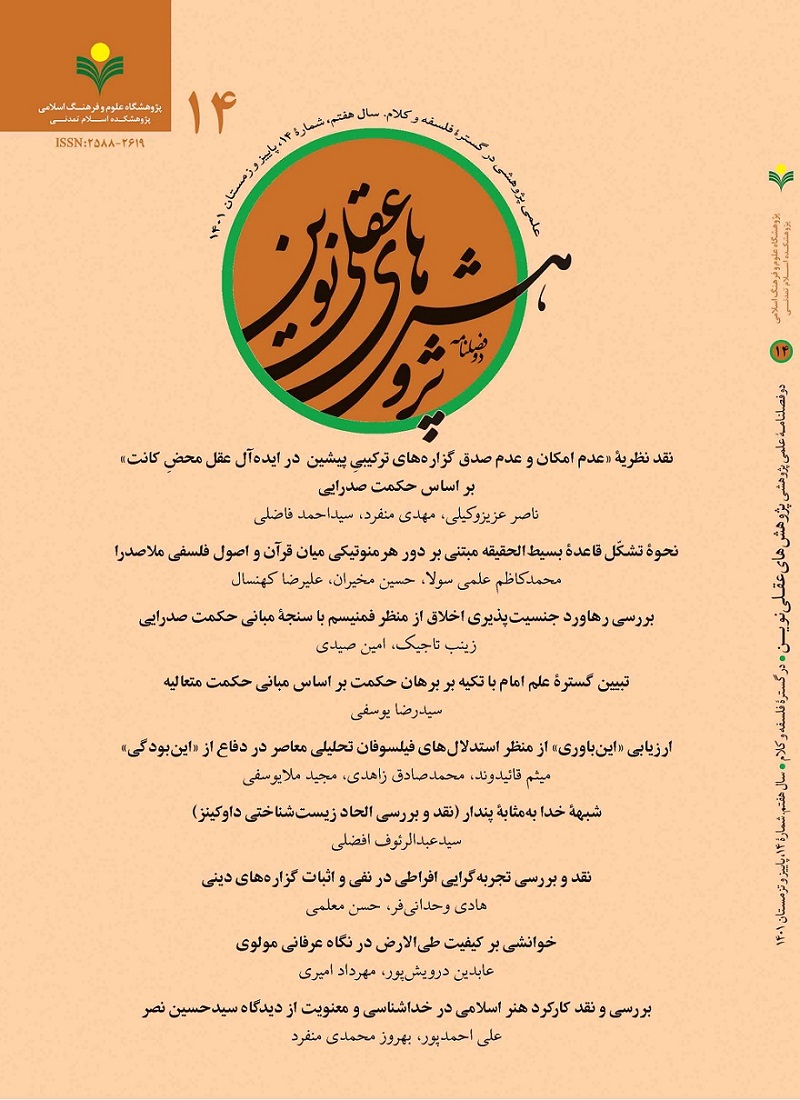 پژوهشگاه علوم و فرهنگ اسلامی
پژوهشکده اسلام تمدنی
ISSN:۲۵۸۸-۲۶۱۹
۱۴
علمی پژوهشی در گسترهٔ فلسفه و کلام. سال هفتم، شمارهٔ ۱۴، پاییز و زمستان ۱۴۰۱
دوفصلنامه
پژوهش های عقلی نوین
نقد نظریهٔ «عدم امکان و عدم صدق گزاره‌های ترکیبیِ پیشین در ایده‌آل عقل محضِ کانت»
بر اساس حکمت صدرایی
ناصر عزیزوکیلی، مهدی منفرد، سیداحمد فاضلی
نحوهٔ تشکّل قاعدهٔ بسیط‌الحقیقه مبتنی بر دور هرمنوتیکی میان قرآن و اصول فلسفی ملاصدرا
محمدکاظم علمی سولا، حسین مخیران، علیرضا کهنسال
بررسی رهاورد جنسیت‌پذیری اخلاق از منظر فمنیسم با سنجهٔ مبانی حکمت صدرایی
زینب تاجیک، امین صیدی
تبیین گسترهٔ علم امام با تکیه بر برهان حکمت بر اساس مبانی حکمت متعالیه
سیدرضا یوسفی
ارزیابی «این‌باوری» از منظر استدلال‌های فیلسوفان تحلیلی معاصر در دفاع از «این‌بودگی»
میثم قائیدوند، محمدصادق زاهدی، مجید ملایوسفی
شبههٔ خدا به‌مثابهٔ پندار (نقد و بررسی الحاد زیست‌شناختی داوکینز)
سیدعبدالرئوف افضلی
نقد و بررسی تجربه‌گرایی افراطی در نفی و اثبات گزاره‌های دینی
هادی وحدانی‌فر، حسن معلمی
خوانشی بر کیفیت طی‌الارض در نگاه عرفانی مولوی
عابدین درویش‌پور، مهرداد امیری
بررسی و نقد کارکرد هنر اسلامی در خداشناسی و معنویت از دیدگاه سیدحسین نصر
علی احمدپور، بهروز محمدی منفرد
پژوهشگاه علوم و فرهنگ اسلامی
پژوهشکده اسلام تمدنی
۱۴
دوفصلنامهٔ علمی پژوهشی پژوهش‌های عقلی نوین • در گسترهٔ فلسفه و کلام • سال هفتم، شمارهٔ ۱۴، پاییز و زمستان ۱۴۰۱